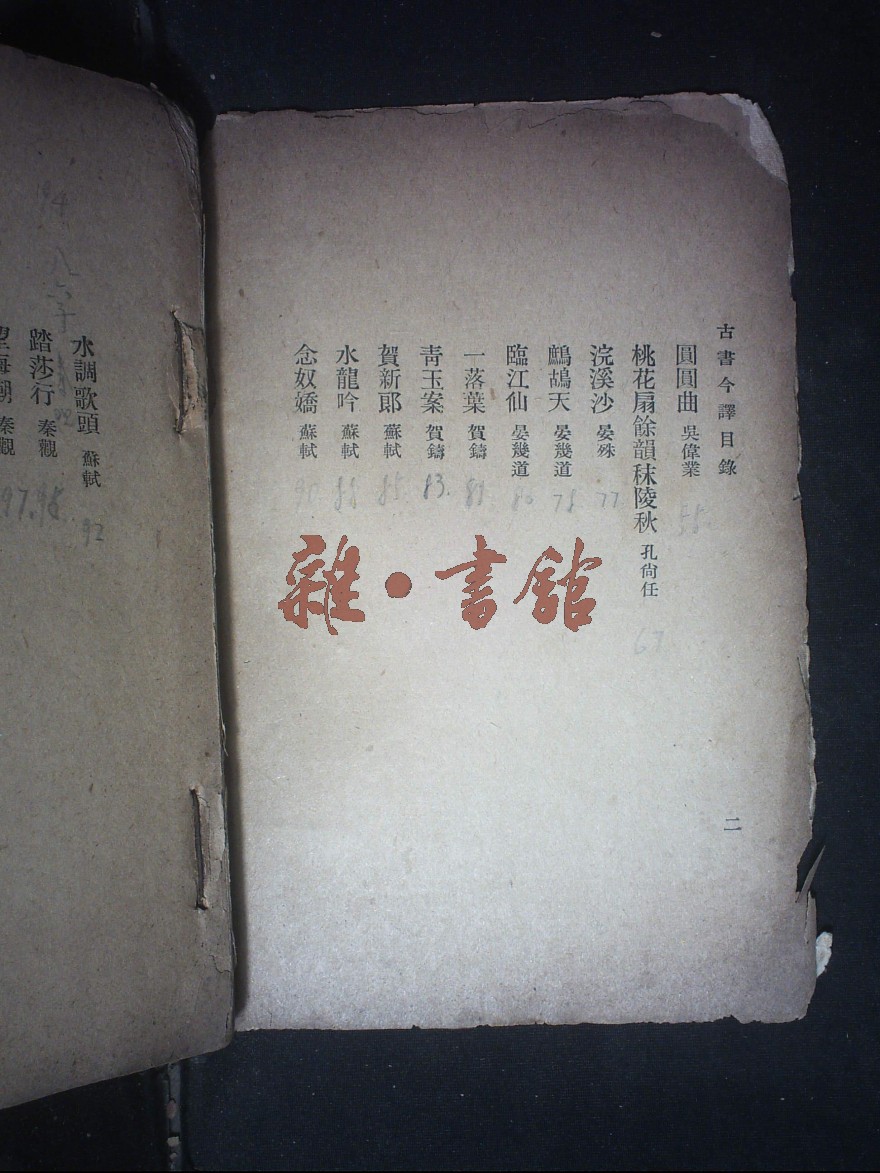 古書今譯目錄
圓圓曲 吳偉業
58
桃花扇餘韻秣陵秋 孔尙任
67
浣溪沙 晏殊
77
鷓鴣天 晏幾道
78
臨江仙 晏幾道
80
一落葉 賀鑄
81
靑玉案 賀鑄
83
賀新郎 蘇軾
85
水龍吟 蘇軾
88
念奴嬌 蘇軾
90
二
水調歌頭 蘇軾
92
踏莎行 秦觀
望海潮 秦觀
雜·書館